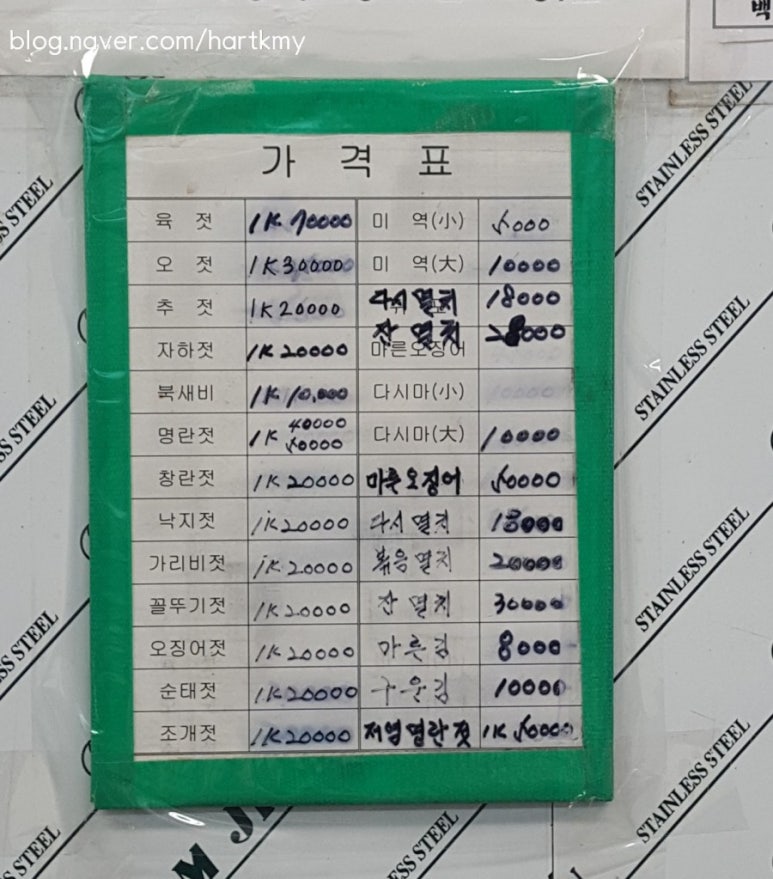 백
blog.naver.com/hartkmy
STAINLESS STEEL
가 격 표
육 젓 1K 70000 미 역(小) 5000
오 젓 1K 300000 미 역(大) 10000
추 젓 1K 20000 다시 멸치 18000
자하젓 1K 20000 잔 멸치 28000
마른오징어
북새비 1K 10,000 다시마(小) 10000
명란젓 1K 40000 50000 다시마(大) 10000
창란젓 1K 20000 마른오징어 50000
낙지젓 1K 20000 다시멸치 18000
가리비젓 1K 20000 볶음멸치 20000
꼴뚜기젓 1K 20000 잔 멸치 30000
오징어젓 1K 20000 마른김 8000
순태젓 1K 20000 구운김 10000
조개젓 1K 20000 저염명란젓 1K 50000
STAINLESS STEEL
STAINLESS STEEL
STAINLESS STEEL
STAINLESS STEEL
STAINLESS STEEL
STAINLESS STEEL
STAINLESS STEEL